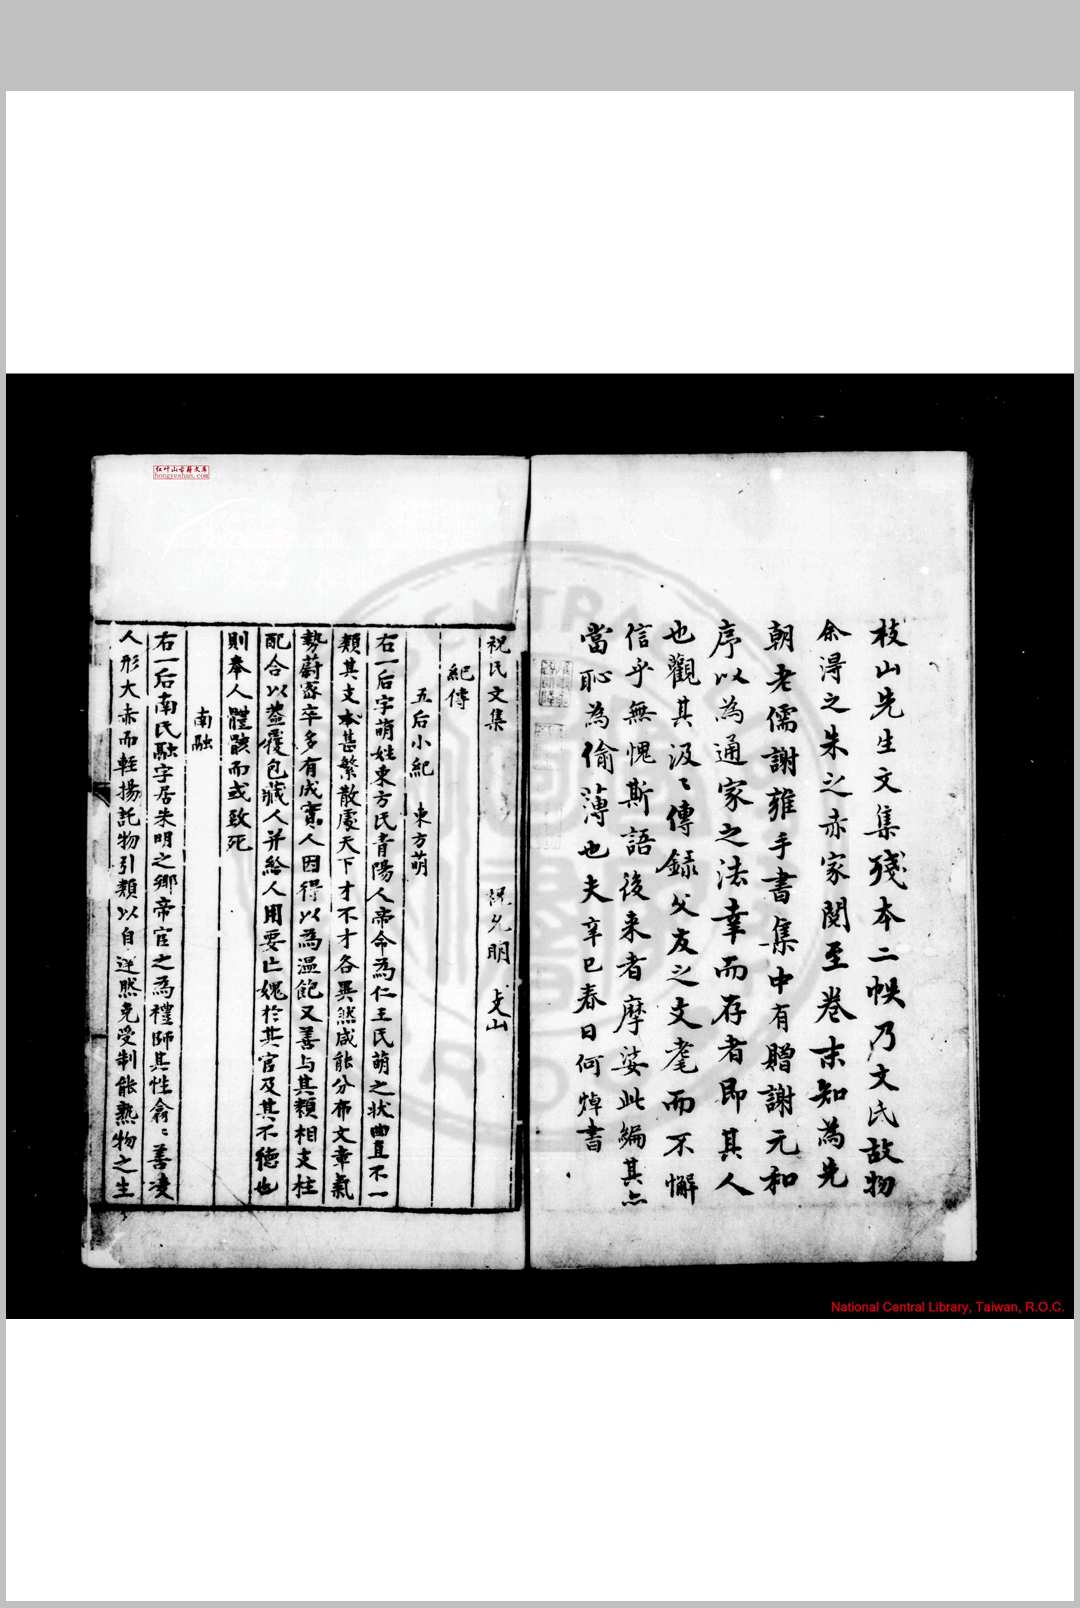 枝山先生文集殘本二帙乃文氏故物
余得之朱之赤家閱至卷末知為先
朝老儒謝雍手書集中有贈謝元和
序以為通家之法幸而存者即其人
也觀其汲〻傳錄父友之文耄而不懈
信乎無愧斯語後来者摩娑此編其亦
當恥為偷薄也夫辛巳春日何焯書
祝氏文集 祝允明 枝山
紀傳
五后小紀 東方萌
右一后字萌姓東方氏青陽人帝命為仁王氏萌之状曲直不一
類其支本甚繁散處天下才不才各異然咸能分布文章氣
勢蔚密卒多有成實人因得以為温飽又善与其類相支柱
配合以蓋覆包藏人并給人用要亡媿於其官及其不德也
則拳人體骸而或致死
南融
右一后南氏融字居朱明之鄉帝官之為禮師其性翕〻善凌
人形大赤而輕揚託物引類以自逆然克受制能熟物之生
红叶山古籍文库
hongyeshan.com
National Central Library, Taiwan, R.O.C.